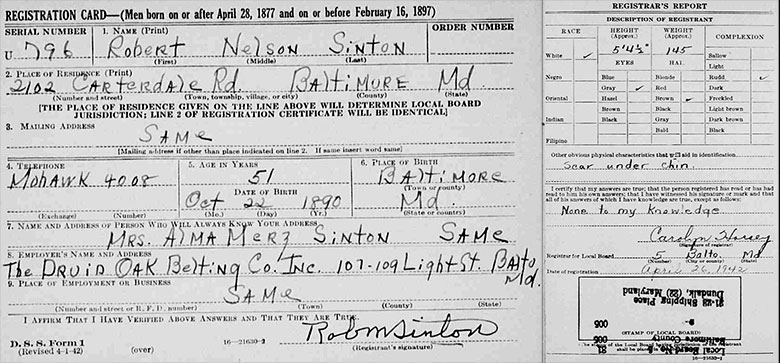 REGISTRATION CARD—(Men born on or after April 28, 1877 and on or before February 16, 1897)
SERIAL NUMBER
1. NAME (Print)
ORDER NUMBER
U 796
Robert Nelson Sinton
(First) (Middle) (Last)
2. PLACE OF RESIDENCE (Print)
2102 Carterdale Rd. Baltimore Md.
(Number and street) (Town, township, village, or city) (County) (State)
[THE PLACE OF RESIDENCE GIVEN ON THE LINE ABOVE WILL DETERMINE LOCAL BOARD
JURISDICTION; LINE 2 OF REGISTRATION CERTIFICATE WILL BE IDENTICAL]
3. MAILING ADDRESS
Same
[Mailing address if other than place indicated on line 2. If same insert word same]
4. TELEPHONE
5. AGE IN YEARS
6. PLACE OF BIRTH
Mohawk 4008
51
Baltimore
(Town or county)
DATE OF BIRTH
Oct 22 1890
Md.
(Exchange) (Number)
(Mo.) (Day) (Yr.)
(State or country)
7. NAME AND ADDRESS OF PERSON WHO WILL ALWAYS KNOW YOUR ADDRESS
Mrs. Alma Merz Sinton Same
8. EMPLOYER'S NAME AND ADDRESS
The Druid Oak Belting Co. Inc. 107-109 Light St. Balto Md.
9. PLACE OF EMPLOYMENT OR BUSINESS
Same
(Number and street or R. F. D. number) (Town) (County) (State)
I AFFIRM THAT I HAVE VERIFIED ABOVE ANSWERS AND THAT THEY ARE TRUE.
D. S. S. Form 1
(Revised 4-1-42)
(over)
16—21630-2
Rob N Sinton
(Registrant's signature)
REGISTRAR'S REPORT
DESCRIPTION OF REGISTRANT
RACE
HEIGHT
(Approx.)
WEIGHT
(Approx.)
COMPLEXION
White ✓
5'4½"
145
Sallow
EYES
HAIR
Light
Negro
Blue
Blonde
Rudd ✓
Gray ✓
Red
Dark
Oriental
Hazel
Brown ✓
Freckled
Brown
Black
Light brown
Indian
Black
Gray
Dark brown
Bald
Black
Filipino
Other obvious physical characteristics that will aid in identification
Scar under chin
I certify that my answers are true; that the person registered has read or has had
read to him his own answers; that I have witnessed his signature or mark and that
all of his answers of which I have knowledge are true, except as follows:
None to my knowledge
(Signature of registrar)
Registrar for Local Board
Balto. Md.
(Number) (City or county) (State)
Date of registration April 26, 1942
Shipping Place
Dundalk, (22) Maryland
Baltimore County
(STAMP OF LOCAL BOARD)